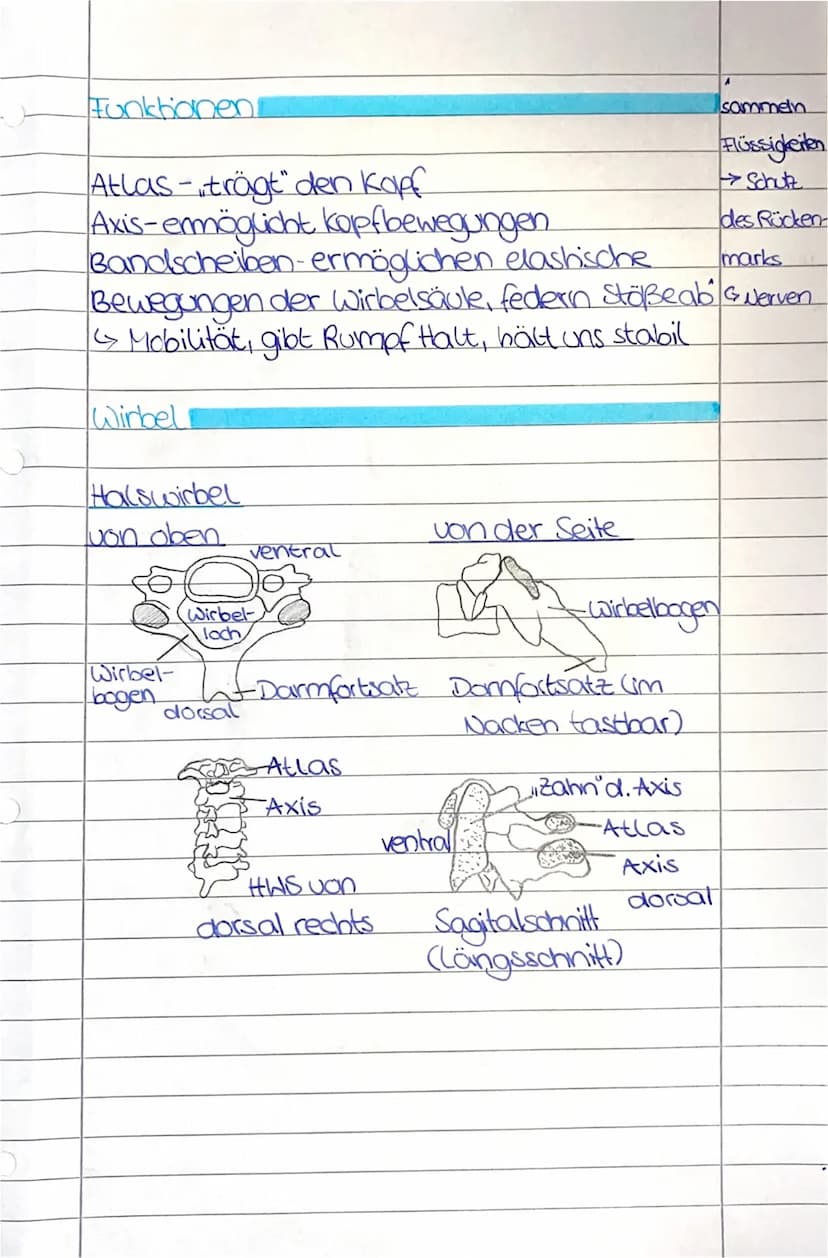 Funktionen
Atlas - „trägt“ den Kopf
Axis - ermöglicht Kopfbewegungen
Bandscheiben - ermöglichen elastische
Bewegungen der Wirbelsäule, federn Stöße ab
↳ Mobilität, gibt Rumpf Halt, hält uns stabil
sammeln
Flüssigkeiten
→ Schutz
des Rücken-
marks
↳ Nerven
Wirbel
Halswirbel
von oben
ventral
Wirbel-
loch
Wirbel-
bogen
dorsal
Darmfortsatz
von der Seite
Wirbelbogen
Dornfortsatz (im
Nacken tastbar)
Atlas
Axis
HWS von
dorsal rechts
„Zahn“ d. Axis
Atlas
ventral
Axis
dorsal
Sagitalschnitt
(Längsschnitt)